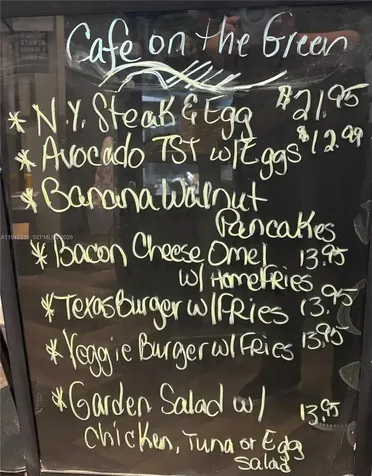 Cafe on the Green
* N.Y. Steak & Egg $21.95
* Avocado TST w/Eggs $12.99
* Banana Walnut
Pancakes
* Bacon Cheese Omel 13.95
w/ Homefries
* Texas Burger w/Fries 13.95
* Veggie Burger w/Fries 13.95
* Garden Salad w/ 13.95
Chicken, Tuna or Egg
Salad